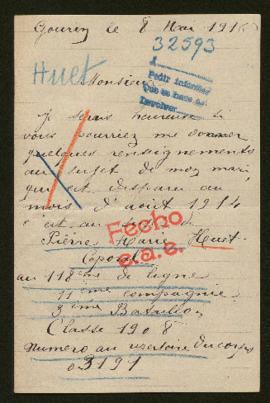 Gourin le 8 Mai 1916
32593
Huet
Monsieur
Pedir informes
Que se hace al
Devolver
Je serais heureuse si
vous pourriez me donner
quelques renseignements
au sujet de mon mari
qui est disparu au
mois d'août 1914
Fecho
Pierre Marie Huet
Caporal
au 118ème de ligne
11ème compagnie
3ème Bataillon
Classe 1908
Numero au
03191